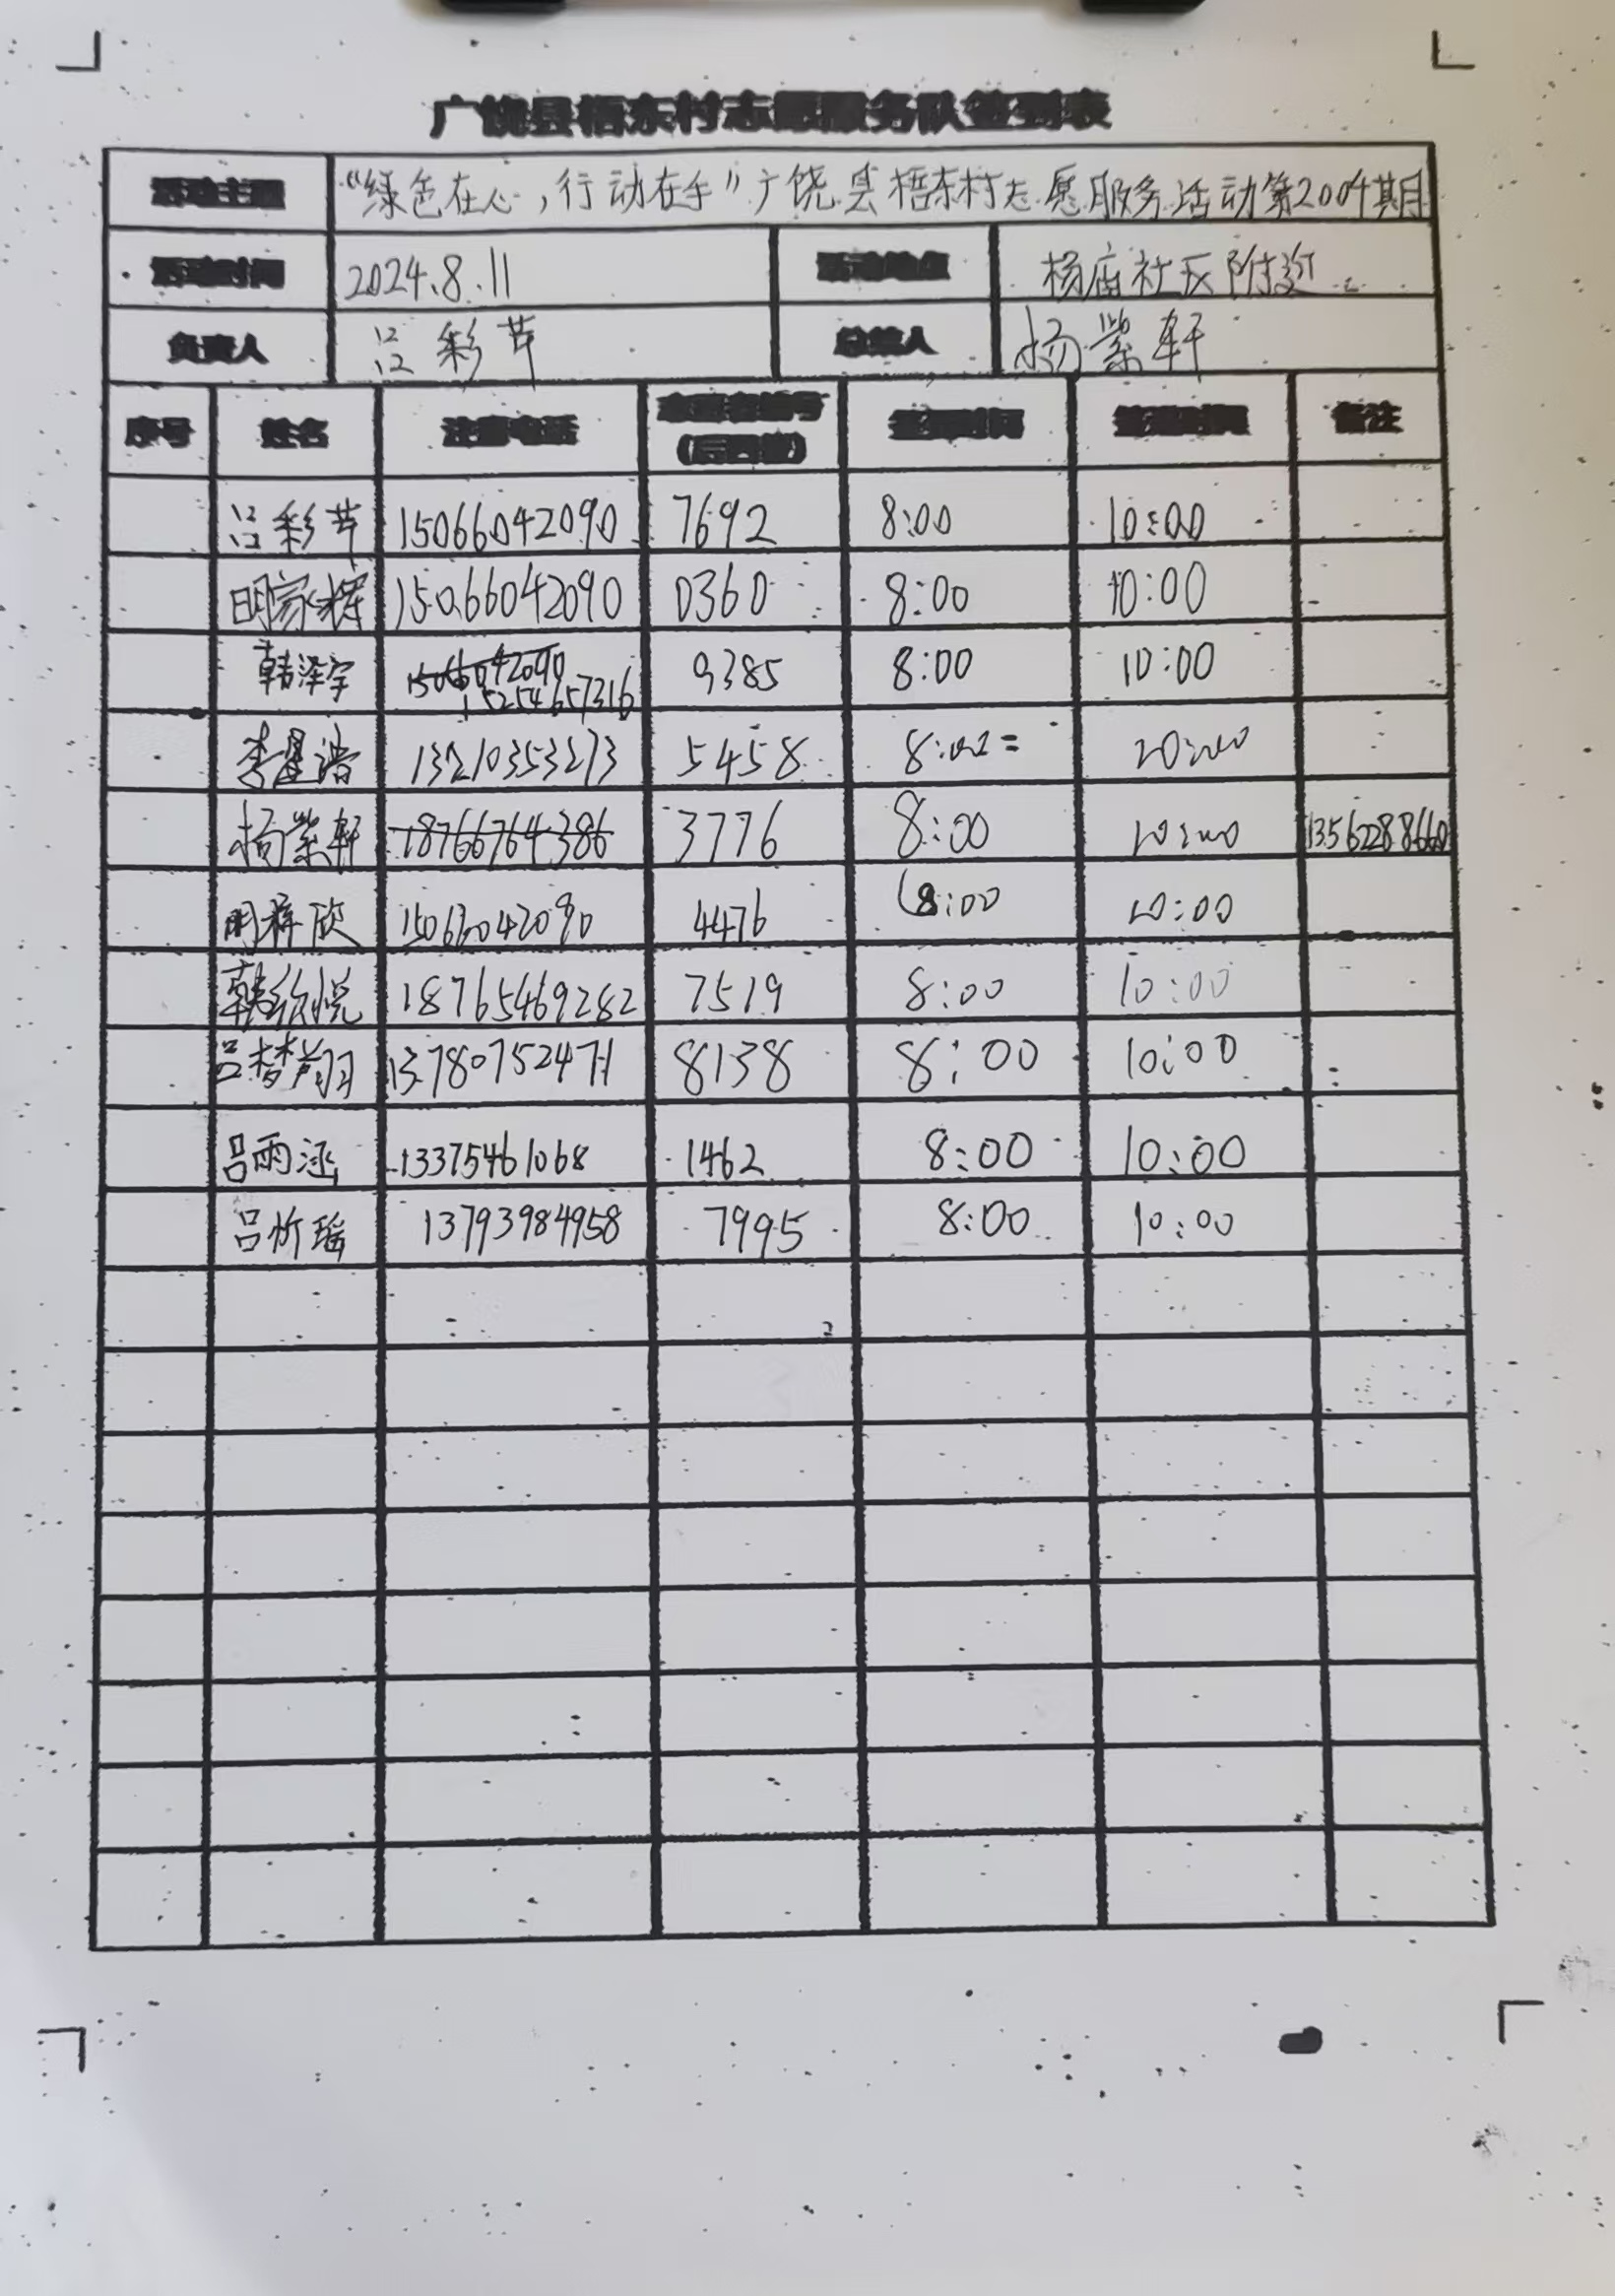 广饶县梧东村志愿服务队签到表
活动主题 “绿色在心,行动在手”广饶县梧东村志愿服务活动第2004期
活动时间 2024.8.11 活动地点 杨庙社区附近
负责人 吕彩芹 总结人 杨紫轩
序号 姓名 注册电话 志愿者编号(后四位) 签到时间 签退时间 备注
吕彩芹 15066042090 7692 8:00 10:00
明家辉 15066042090 0360 8:00 10:00
韩泽宇 15066042090 15254657316 9385 8:00 10:00
李星浩 13210353273 5458 8:00 10:00
杨紫轩 18766764386 3776 8:00 10:00 13562288660
明梓欣 15066042090 4476 8:00 10:00
韩欣悦 18765469282 7519 8:00 10:00
吕梦翔 13780752471 8138 8:00 10:00
吕雨涵 13375461068 1462 8:00 10:00
吕忻瑶 13793984958 7995 8:00 10:00